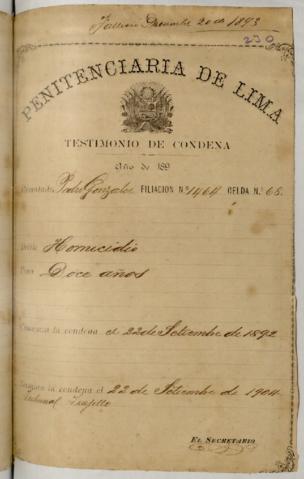 Falleció Diciembre 20 de 1893
230
PENITENCIARIA DE LIMA
TESTIMONIO DE CONDENA
Año de 189
Penitenciado Pedro Gonzales FILIACION N.º 1464 CELDA N.º 68.
Delito Homicidio
Pena Doce años
Comienza la condena el 22 de Setiembre de 1892
Termina la condena el 22 de Setiembre de 1904
Tribunal Trujillo
EL SECRETARIO